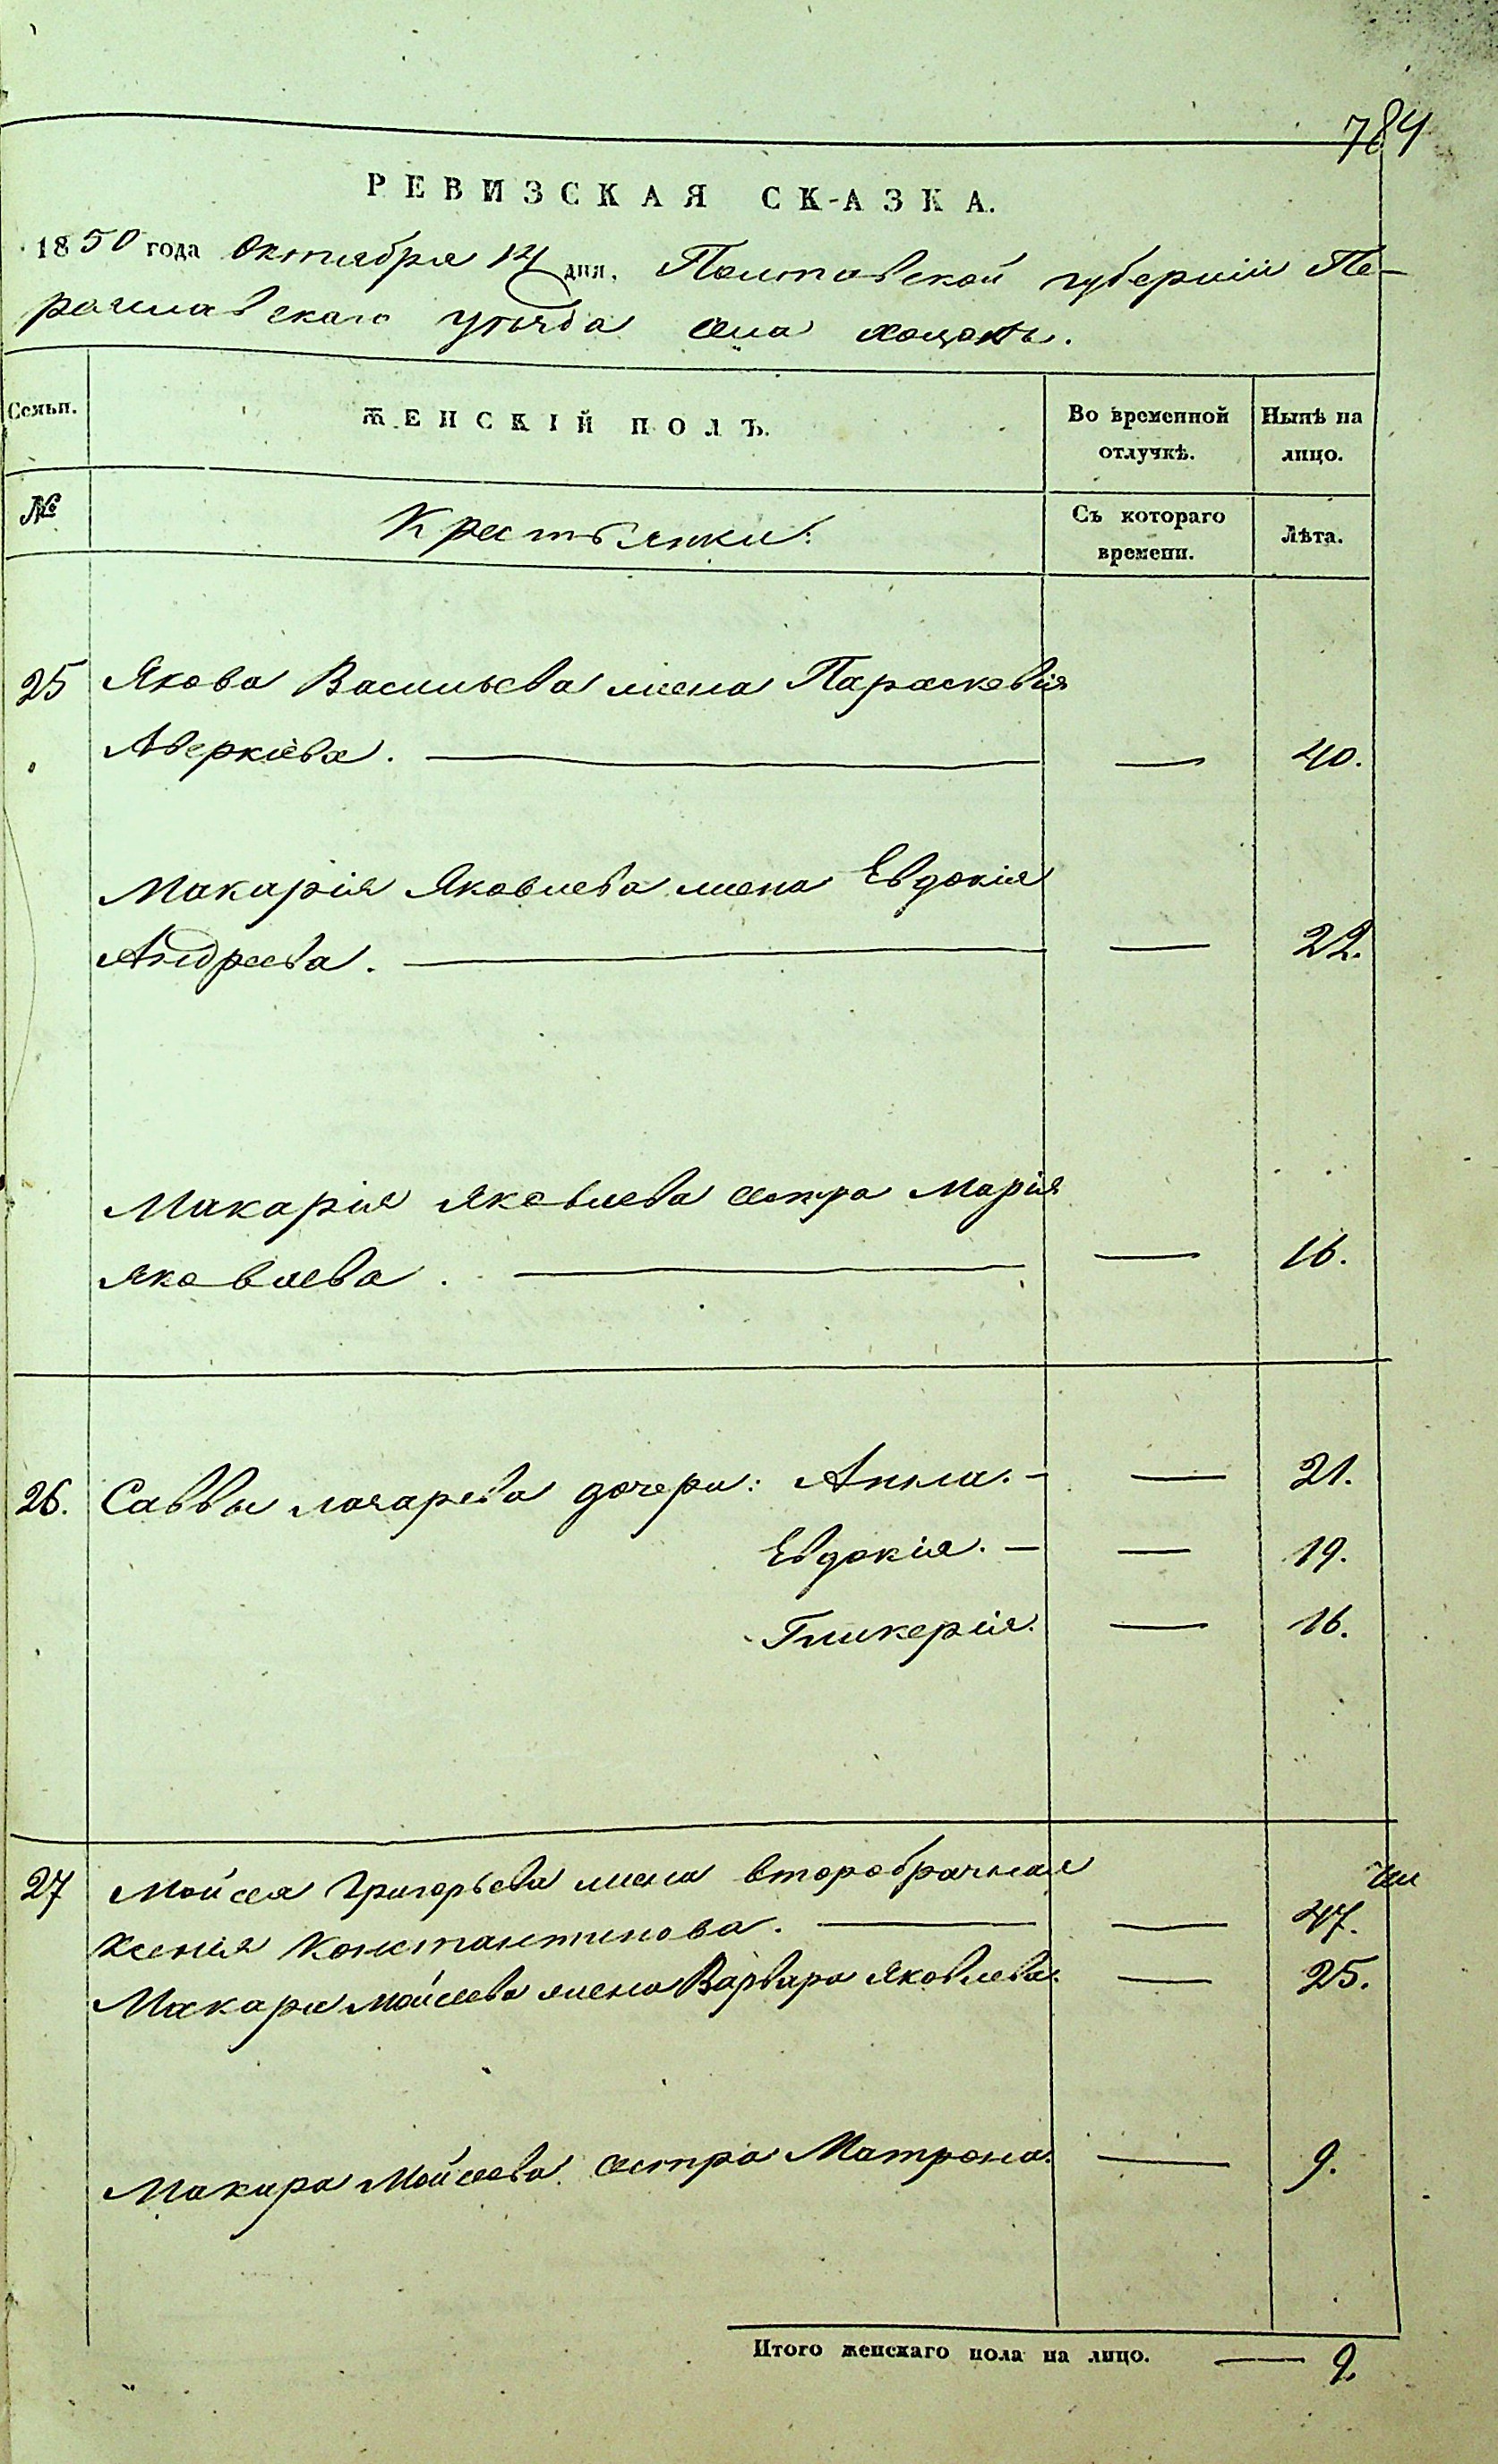 784
РЕВИЗСКАЯ СКАЗКА.
1850 года Октября 14 дня, Полтавской губерніи Пе-
реяславскаго уѣзда села Хоцокъ.
Семьи. ЖЕНСКІЙ ПОЛЪ. Во временной отлучкѣ. Нынѣ на лицо.
№ Крестьянки: Съ котораго времени. Лѣта.
25 Якова Васильева жена Параскевія
Аверкіева. — — 40.
Макарія Яковлева жена Евдокія
Андреева. — — 22.
Макарія Яковлева сестра Марія
Яковлева. — — 16.
26. Саввы Лазарева дочери: Анна. — — 21.
Евдокія. — — 19.
Гликерія. — 16.
27 Мойсея Григорьева жена второбрачная
Ксенія Константинова. — — 47.
Макара Мойсеева жена Варвара Яковлева. — 25.
Макара Мойсеева сестра Матрона. — 9.
Итого женскаго пола на лицо. — 9.